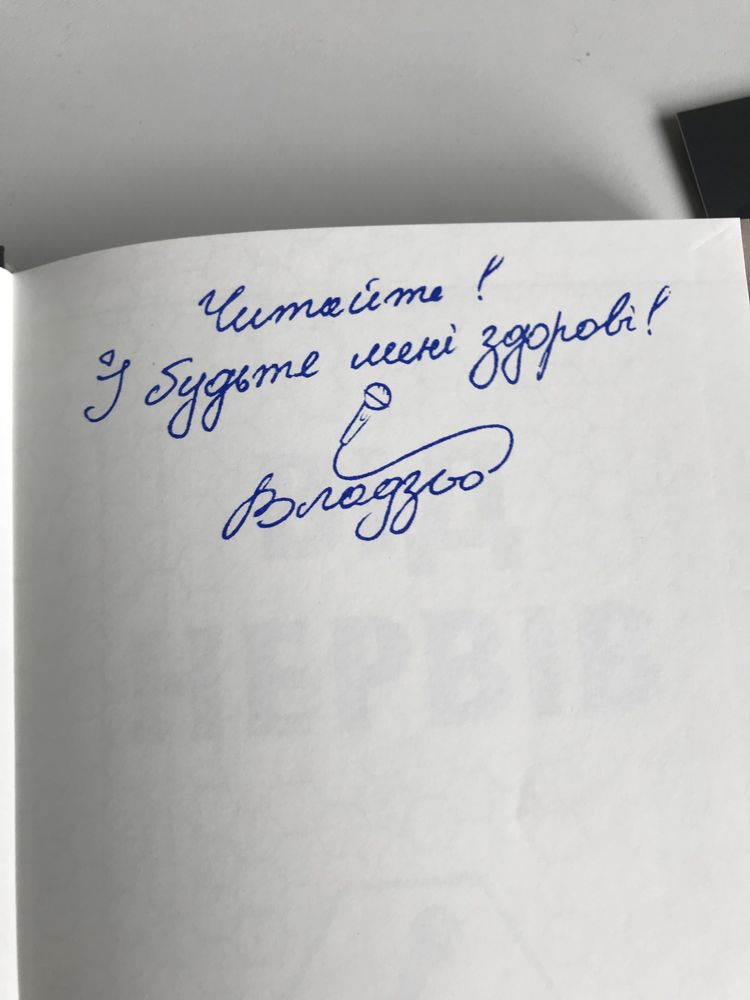 Читайте!
І будьте мені здорові!
Владзьо
ВІД
НЕРВІВ